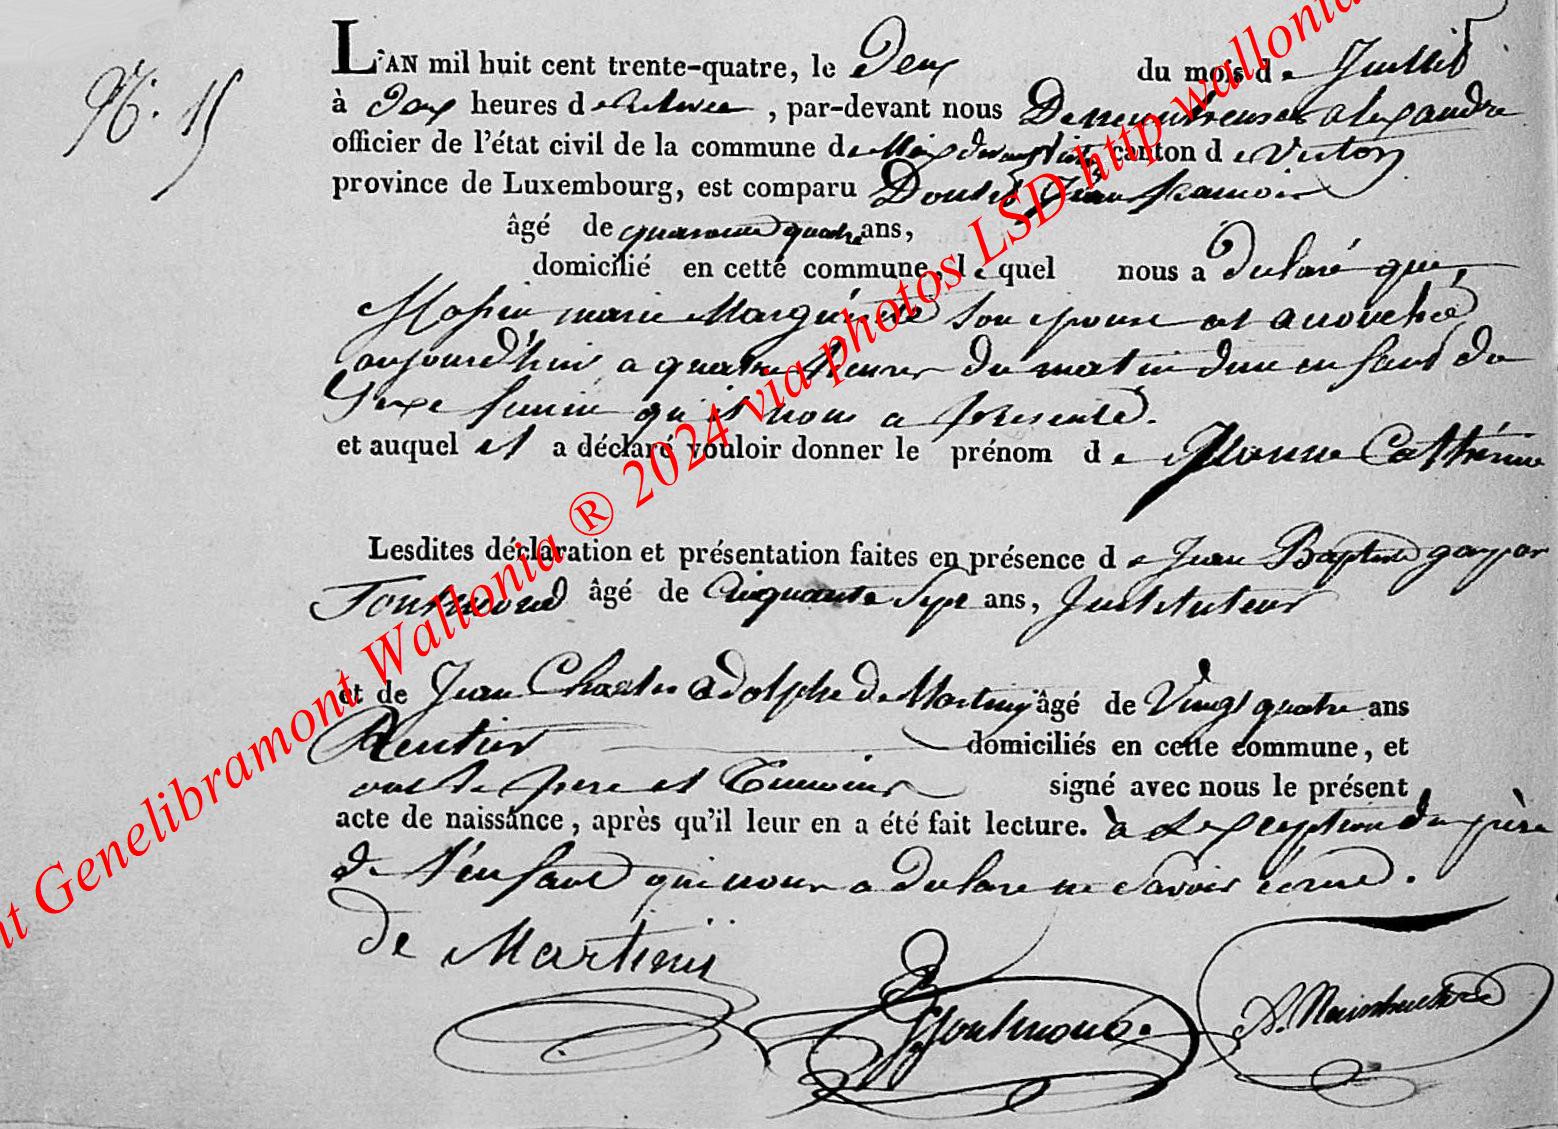 N.° 15
L'AN mil huit cent trente-quatre, le Deux du mois de Juillet
à Deux heures de relevée, par-devant nous alexandre
officier de l'état civil de la commune de Meix devant virton canton de Virton
province de Luxembourg, est comparu Jean francois
âgé de quarante quatre ans,
domicilié en cette commune, lequel nous a declaré que
marie Marguérite son epouse est accouchée
aujourd'hui a quatre heures du matin d'un enfant du
Sexe feminin qu'il nous a presenté.
et auquel il a déclaré vouloir donner le prénom de Jeanne Cathérine
Lesdites déclaration et présentation faites en présence de Jean Baptiste gaspar
âgé de Cinquante Sept ans, Instituteur
et de Jean Charles adolphe de Martiny âgé de Vingt quatre ans
Rentier domiciliés en cette commune, et
ont le pere et Temoins signé avec nous le présent
acte de naissance, après qu'il leur en a été fait lecture. à L'exception du père
de l'enfant qui nous a declare ne savoir ecrire.
de Martini
nt Genelibramont Wallonia ® 2024 via photos LSD http wallonia